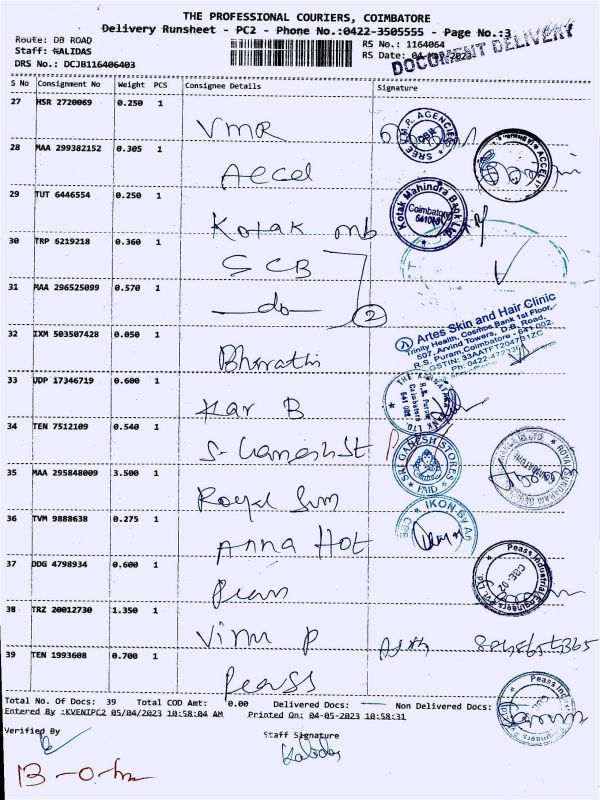 THE PROFESSIONAL COURIERS, COIMBATORE
Delivery Runsheet - PC2 - Phone No.:0422-3505555 - Page No.:3
Route: DB ROAD
RS No.: 1164064
Staff: KALIDAS
RS Date: 04-May-2023
DRS No.: DCJB116406403
DOCUMENT DELIVERY
S No Consignment No Weight PCS Consignee Details Signature
27 HSR 2720069 0.250 1 VMR
SREE V.M.R. AGENCIES CBE
28 MAA 299382152 0.305 1 Accel
ACCEL
29 TUT 6446554 0.250 1 Kotak mb
Kotak Mahindra Bank Ltd Coimbatore
30 TRP 6219218 0.360 1 SCB
31 MAA 296525099 0.570 1 -do- 2
32 IXM 503507428 0.050 1 Bharathi
Artes Skin and Hair Clinic
Trinity Health, Cosmos Bank 1st Floor,
507, Arvind Towers, D.B. Road,
R.S. Puram, Coimbatore - 641 002.
GSTIN: 33AATFT2047B1ZC
33 UDP 17346719 0.600 1 Kar B
R.S. Puram Coimbatore 641 002
34 TEN 7512109 0.540 1 S. Ganesh St
SRI GANESH STORES PAID
35 MAA 295848009 3.500 1 Royal Sun
36 TVM 9888638 0.275 1 Anna Hot
IKON By An CBE
37 DDG 4798934 0.600 1
Peass Industrial Engineers Pvt. Ltd. CBE-02
38 TRZ 20012730 1.350 1
39 TEN 1993608 0.700 1 Peass
Peass Ind
Total No. Of Docs: 39 Total COD Amt: 0.00 Delivered Docs: Non Delivered Docs:
Entered By :KVENIPC2 05/04/2023 10:58:04 AM Printed On: 04-05-2023 10:58:31
Verified By
Staff Signature
Kalidas